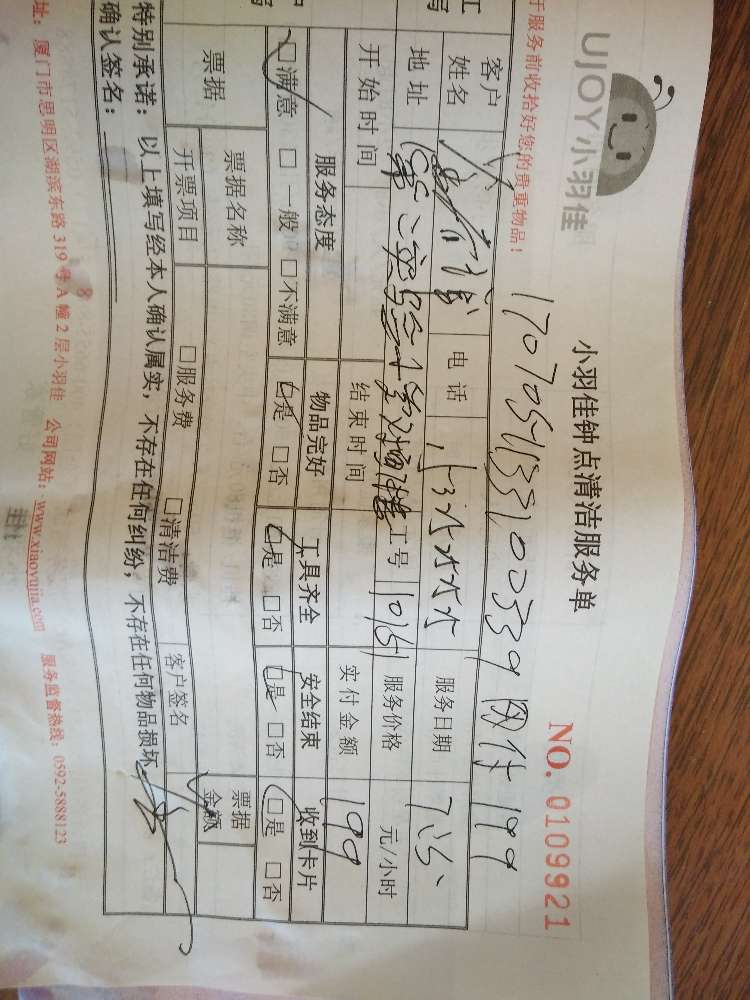 UJOY小羽佳
小羽佳钟点清洁服务单
NO. 0109921
于服务前收拾好您的贵重物品！
网付 199
客户姓名 电话 服务日期
地址 工号 1015 服务价格 元/小时
开始时间 结束时间 实付金额 199
服务态度 物品完好 工具齐全 安全结束 收到卡片
□满意 □一般 □不满意 □是 □否 □是 □否 □是 □否 □是 □否
票据 票据名称 票据金额
开票项目 □服务费 □清洁费 客户签名
特别承诺：以上填写经本人确认属实，不存在任何纠纷，不存在任何物品损坏
确认签名：
址：厦门市思明区湖滨东路319号A幢2层小羽佳 公司网站：www.xiaoyujia.com 服务监督热线：0592-5888123